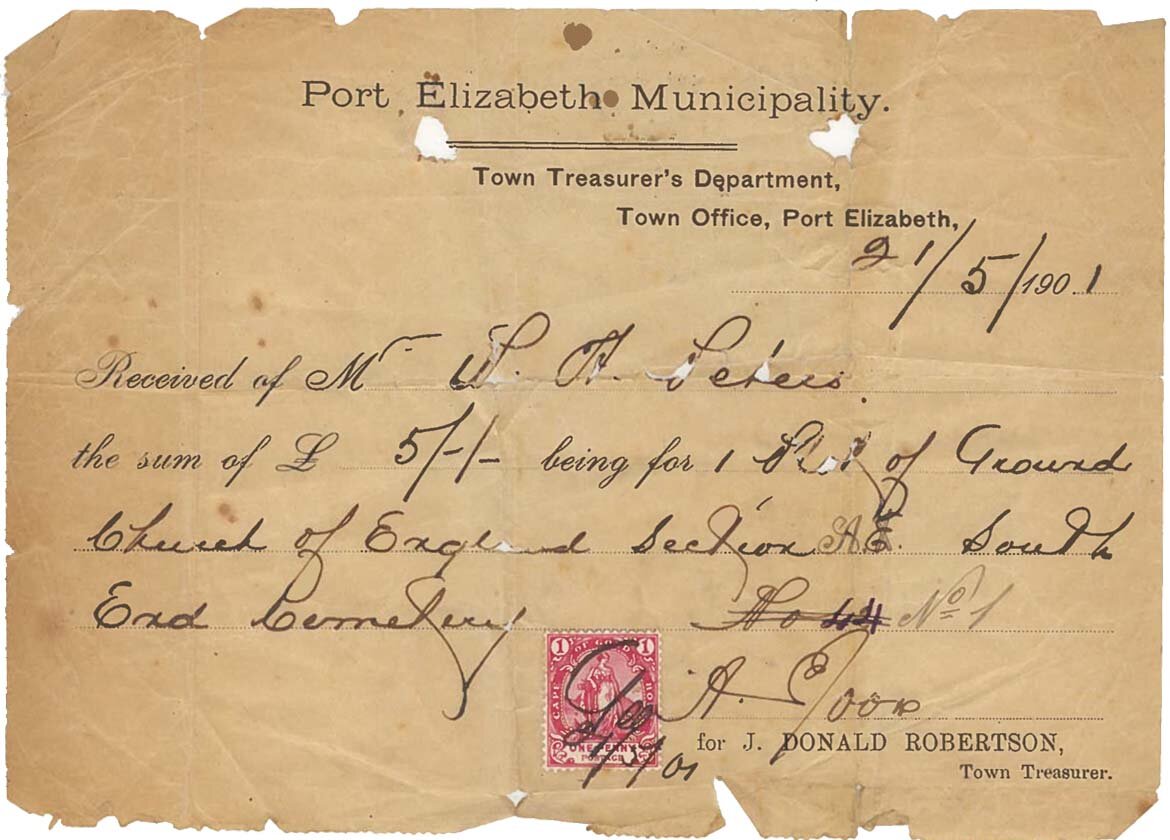 Port Elizabeth Municipality.
Town Treasurer's Department,
Town Office, Port Elizabeth,
21/5/1901
Received of Mr W. H. Peters.
the sum of £ 5/-/- being for 1 Plot of Ground
Church of England Section A E. South
End Cemetery No 44 No 1
CAPE OF GOOD HOPE
1 1
ONE PENNY
POSTAGE
Geo A.
21/5/01
for J. DONALD ROBERTSON,
Town Treasurer.